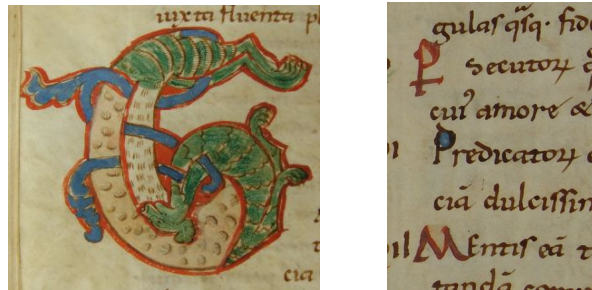 iuxta fluenta p
cia
gulas qsq. fid
P secutoꝝ q
cui' amore &
Predicatoꝝ
cia dulcissin
MEntis eā t
tandā